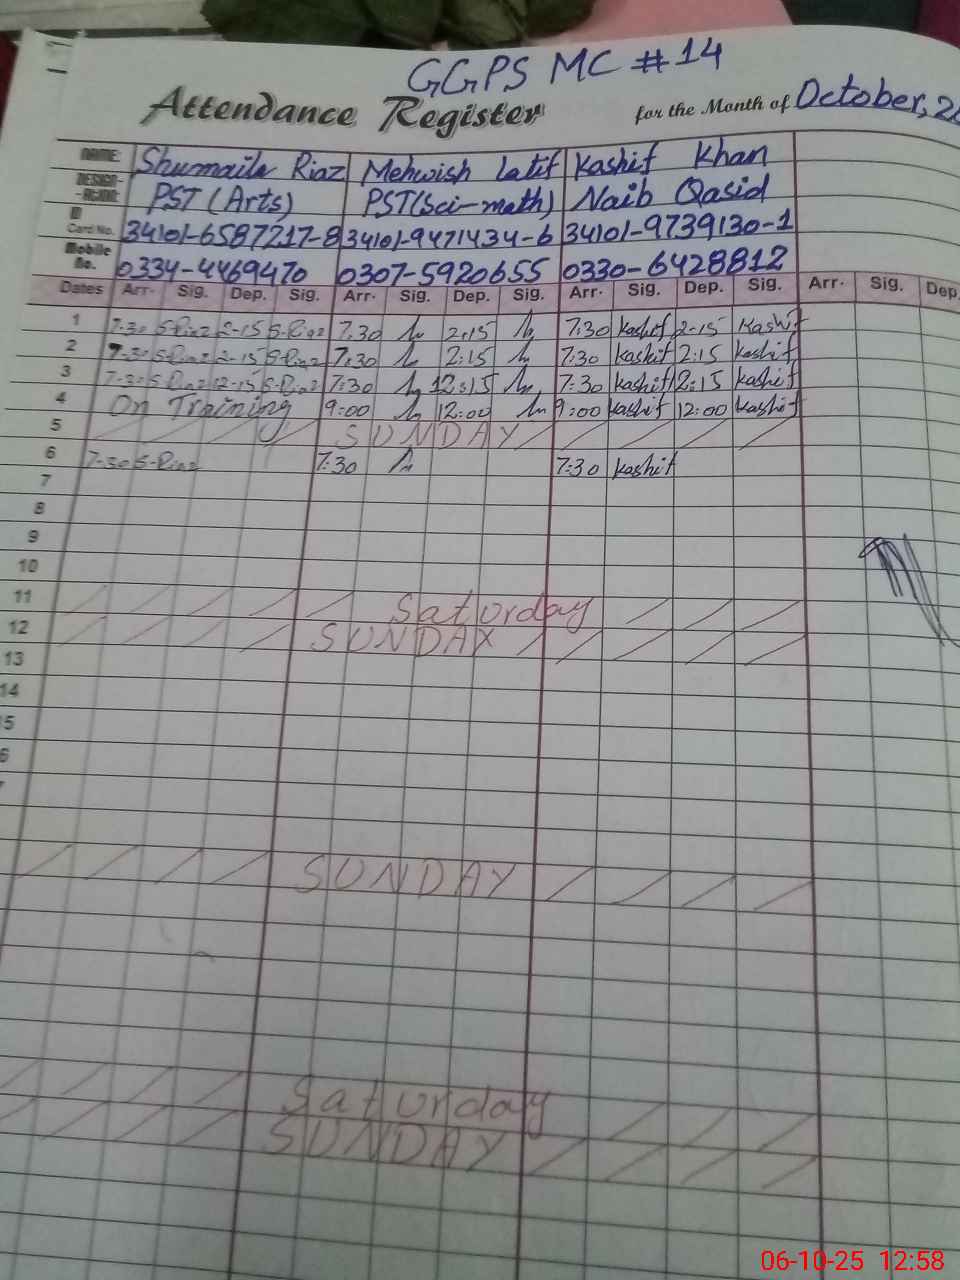 GGPS MC #14
Attendance Register for the Month of October, 2
NAME: Shumaila Riaz Mehwish Latif Kashif Khan
DESIGN-ATION: PST (Arts) PST(Sci-math) Naib Qasid
ID Card No. 34101-6587217-8 34101-9471434-6 34101-9739130-1
Mobile No. 0334-4469470 0307-5920655 0330-6428812
Dates Arr. Sig. Dep. Sig. Arr. Sig. Dep. Sig. Arr. Sig. Dep. Sig. Arr. Sig. Dep.
1 7-30 S-Riaz 2-15 S-Riaz 7.30 2.15 7:30 Kashif 2-15 Kashif
2 7-30 S-Riaz 2-15 S-Riaz 7:30 2:15 7:30 Kashif 2:15 Kashif
3 7-30 S-Riaz 12-15 S-Riaz 7:30 12:15 7:30 Kashif 12:15 Kashif
4 On Training 9:00 12:00 9:00 Kashif 12:00 Kashif
5 SUNDAY
6 7-30 S-Riaz 7:30 7:30 Kashif
7
8
9
10
11 Saturday
12 SUNDAY
13
14
5
6
SUNDAY
Saturday
SUNDAY
06-10-25 12:58